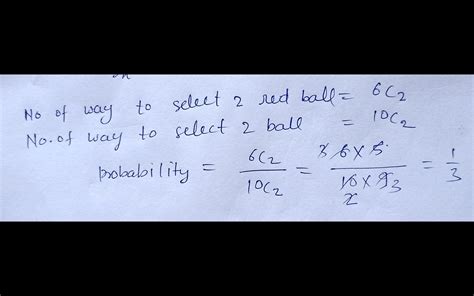 No of way to select 2 red ball = 6C2
No. of way to select 2 ball = 10C2
probability = 6C2 / 10C2 = 3 6 × 5 / 10 × 9 3 = 1 / 3
2